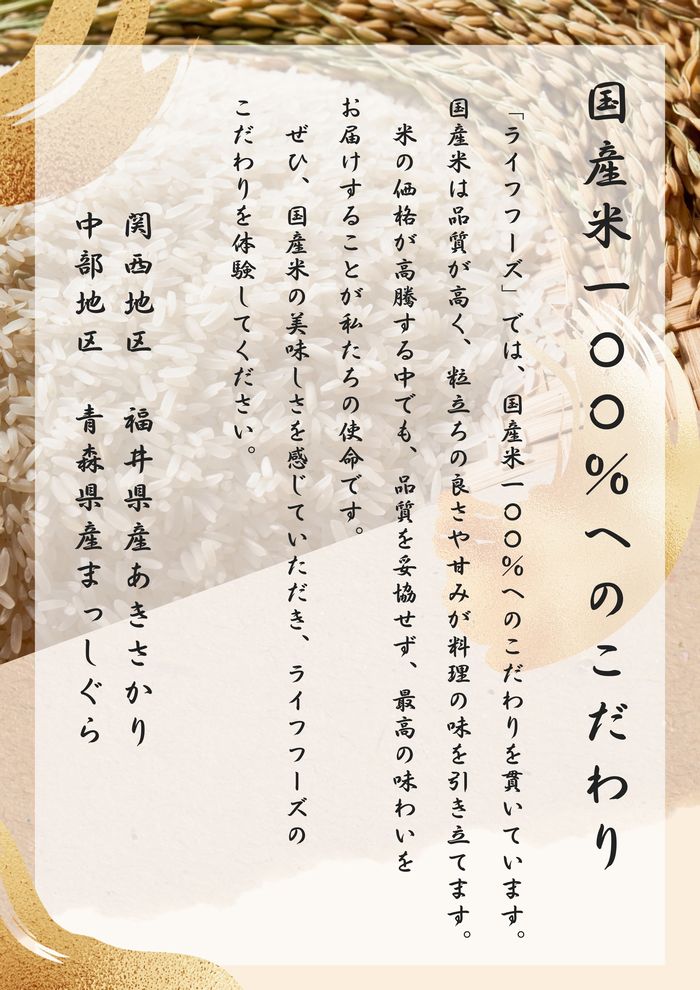 国産米一〇〇%へのこだわり
「ライフフーズ」では、国産米一〇〇%へのこだわりを貫いています。
国産米は品質が高く、粒立ちの良さや甘みが料理の味を引き立てます。
米の価格が高騰する中でも、品質を妥協せず、最高の味わいを
お届けすることが私たちの使命です。
ぜひ、国産米の美味しさを感じていただき、ライフフーズの
こだわりを体験してください。
関西地区　福井県産あきさかり
中部地区　青森県産まっしぐら